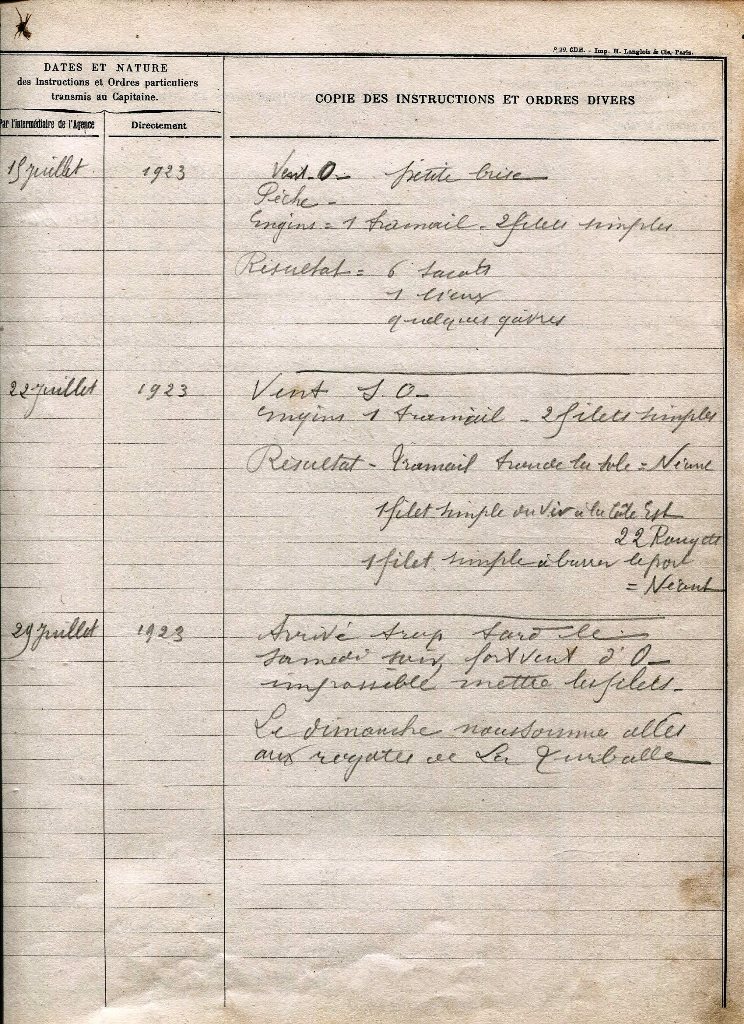 P. 29. CDB. - Imp. H. Langlois & Cie, Paris.
DATES ET NATURE
des Instructions et Ordres particuliers
transmis au Capitaine.
Par l'intermédiaire de l'Agence
Directement
COPIE DES INSTRUCTIONS ET ORDRES DIVERS
15 juillet 1923 Vent - O - petite brise
Pêche -
Engins = 1 tramail - 2 filets simples
Résultat = 6
1 lieux
quelques
22 juillet 1923 Vent S. O -
Engins 1 tramail - 2 filets simples
Résultat - Tramail la sole = Néant
1 filet simple du Vivier à la côte Est
22 Rougets
1 filet simple à barrer le port
= Néant
29 Juillet 1923 Arrivé trop tard le
samedi soir fort vent d'O -
impossible mettre les filets -
Le dimanche nous sommes allés
aux regates de La Turballe